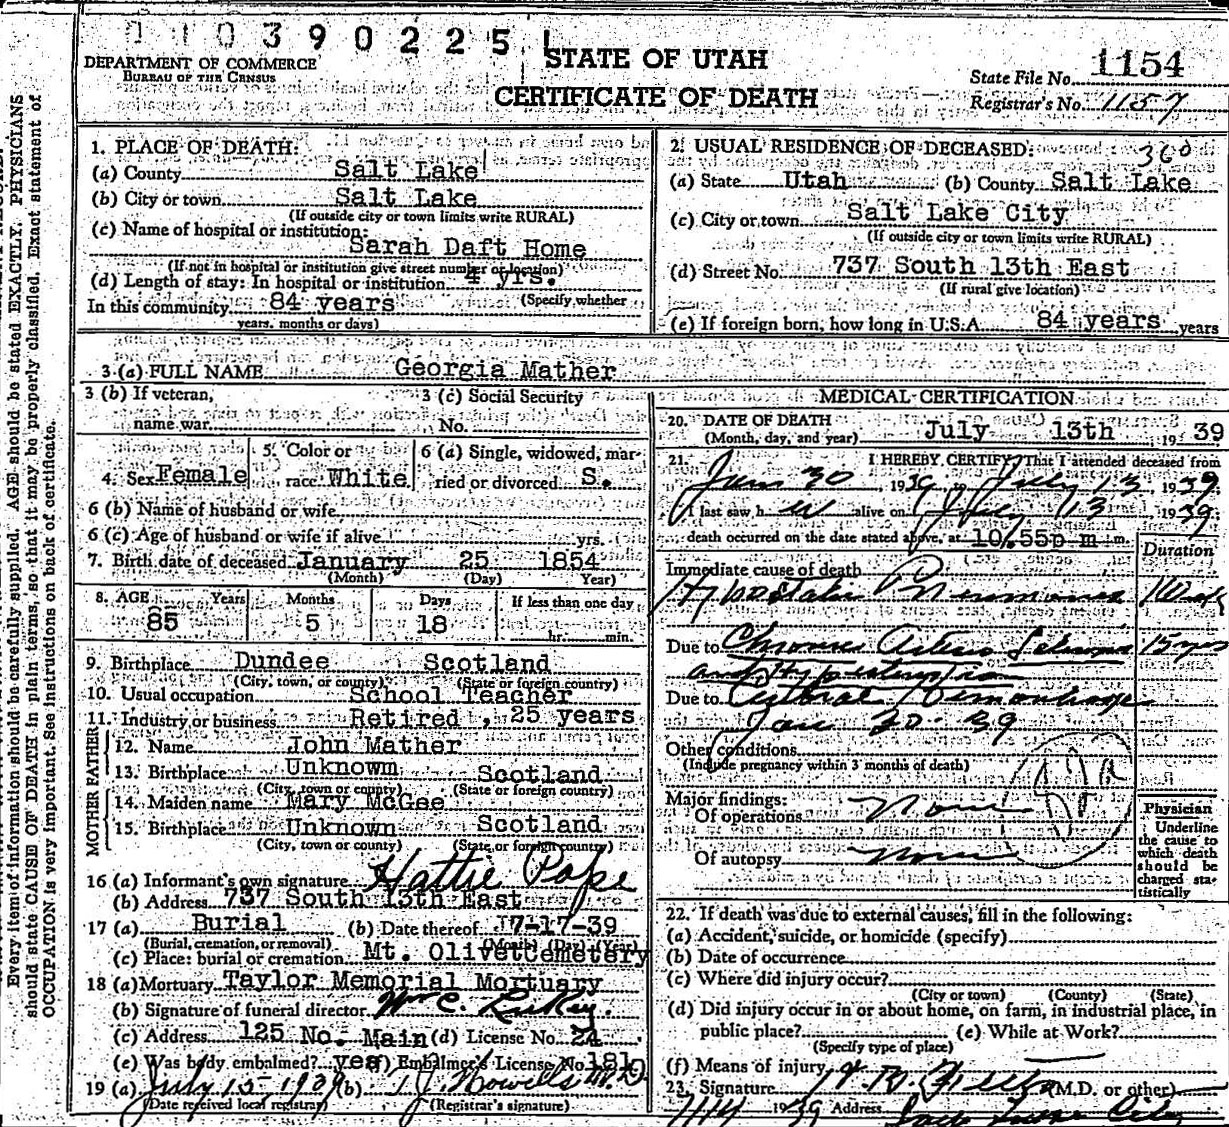 11039022511
DEPARTMENT OF COMMERCE
BUREAU OF THE CENSUS
STATE OF UTAH
CERTIFICATE OF DEATH
State File No. 1154
Registrar's No. 1157
Every item of information should be carefully supplied. AGE should be stated EXACTLY. PHYSICIANS
should state CAUSE OF DEATH in plain terms, so that it may be properly classified. Exact statement of
OCCUPATION is very important. See instructions on back of certificate.
1. PLACE OF DEATH:
(a) County Salt Lake
(b) City or town Salt Lake
(If outside city or town limits write RURAL)
(c) Name of hospital or institution:
Sarah Daft Home
(If not in hospital or institution give street number or location)
(d) Length of stay: In hospital or institution 4 yrs.
(Specify whether
In this community 84 years
years, months or days)
2. USUAL RESIDENCE OF DECEASED: 360
(a) State Utah (b) County Salt Lake
(c) City or town Salt Lake City
(If outside city or town limits write RURAL)
(d) Street No. 737 South 13th East
(If rural give location)
(e) If foreign born, how long in U.S.A. 84 years years
3 (a) FULL NAME Georgia Mather
3 (b) If veteran,
name war
3 (c) Social Security
No.
4. Sex Female
5. Color or
race White
6 (a) Single, widowed, mar-
ried or divorced S.
6 (b) Name of husband or wife
6 (c) Age of husband or wife if alive yrs.
7. Birth date of deceased January 25 1854
(Month) (Day) Year)
8. AGE Years Months Days If less than one day
85 5 18 hr. min.
9. Birthplace Dundee Scotland
(City, town, or county) (State or foreign country)
10. Usual occupation School Teacher
11. Industry or business Retired, 25 years
FATHER
12. Name John Mather
13. Birthplace Unknown Scotland
(City, town or county) (State or foreign country)
MOTHER
14. Maiden name Mary McGee
15. Birthplace Unknown Scotland
(City, town or county) (State or foreign country)
16 (a) Informant's own signature Hattie Pope
(b) Address 737 South 13th East
17 (a) Burial (b) Date thereof 7-17-39
(Burial, cremation, or removal) (Month) (Day) (Year)
(c) Place: burial or cremation Mt. Olivet Cemetery
18 (a) Mortuary Taylor Memorial Mortuary
(b) Signature of funeral director Wm C.
(c) Address 125 No. Main (d) License No. 24
(e) Was body embalmed? yes (f) Embalmer's License No. 181
19 (a) July 15 1939 (b) T.J. Howells M.D.
(Date received local registrar) (Registrar's signature)
MEDICAL CERTIFICATION
20. DATE OF DEATH
(Month, day, and year) July 13th 19 39
21. I HEREBY CERTIFY, That I attended deceased from
Jan 30, 1939 to July 13, 1939
I last saw her alive on July 13 1939
death occurred on the date stated above, at 10:55 p m m.
Duration
Immediate cause of death
Hypostatic Pneumonia 1 Week
Due to Chronic Arterio Sclerosis 15 yrs
and Hypertension
Due to Cerebral Hemorrhage
Jan 30-39
Other conditions
(Include pregnancy within 3 months of death)
Major findings:
Of operations None
Of autopsy None
Physician
Underline
the cause to
which death
should be
charged sta-
tistically
22. If death was due to external causes, fill in the following:
(a) Accident, suicide, or homicide (specify)
(b) Date of occurrence
(c) Where did injury occur?
(City or town) (County) (State)
(d) Did injury occur in or about home, on farm, in industrial place, in
public place? (e) While at Work?
(Specify type of place)
(f) Means of injury
23. Signature (M.D. or other)
7/14 1939 Address Salt Lake City